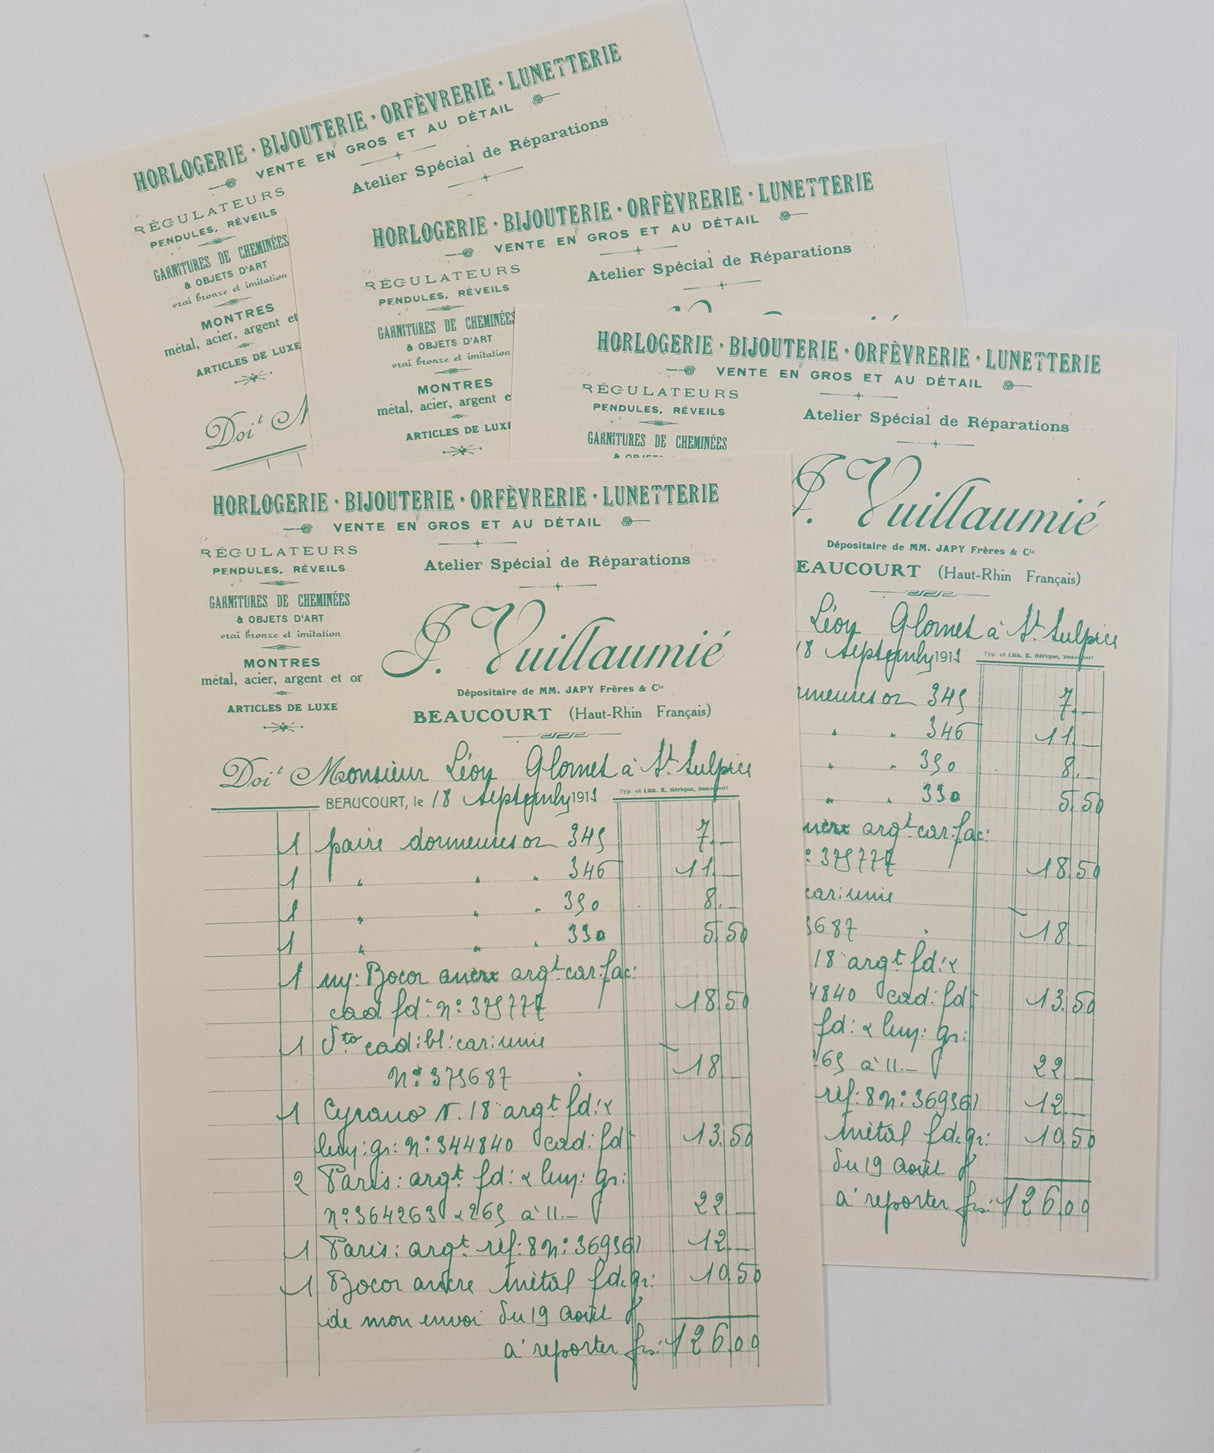 HORLOGERIE · BIJOUTERIE · ORFÈVRERIE · LUNETTERIE
VENTE EN GROS ET AU DÉTAIL
Atelier Spécial de Réparations
RÉGULATEURS
PENDULES, RÉVEILS
GARNITURES DE CHEMINÉES
& OBJETS D'ART
vrai bronze et imitation
MONTRES
métal, acier, argent et
ARTICLES DE LUXE
Doit M
HORLOGERIE · BIJOUTERIE · ORFÈVRERIE · LUNETTERIE
VENTE EN GROS ET AU DÉTAIL
Atelier Spécial de Réparations
RÉGULATEURS
PENDULES, RÉVEILS
GARNITURES DE CHEMINÉES
& OBJETS D'ART
vrai bronze et imitation
MONTRES
métal, acier, argent e
ARTICLES DE LUX
HORLOGERIE · BIJOUTERIE · ORFÈVRERIE · LUNETTERIE
VENTE EN GROS ET AU DÉTAIL
Atelier Spécial de Réparations
RÉGULATEURS
PENDULES, RÉVEILS
GARNITURES DE CHEMINÉES
J. Vuillaumié
Dépositaire de MM. JAPY Frères & Cie
EAUCOURT (Haut-Rhin Français)
Léon Glornet à St Sulpice
18 1911
Typ. et Lith. E. Hérique,
345 7.—
" " 346 11.—
" " 350 8.—
" " 330 5.50
argt car: fac:
: 375777 18.50
car: unie
5687 18.—
18 argt fd: &
4840 cad: fd 13.50
fd: & luy: gr:
265 à 11.— 22.—
ref: 8 no: 369361 12.—
métal fd. gr: 10.50
du 19 août
a' reporter frs: 126.00
HORLOGERIE · BIJOUTERIE · ORFÈVRERIE · LUNETTERIE
VENTE EN GROS ET AU DÉTAIL
RÉGULATEURS
PENDULES, RÉVEILS
Atelier Spécial de Réparations
GARNITURES DE CHEMINÉES
& OBJETS D'ART
vrai bronze et imitation
J. Vuillaumié
MONTRES
métal, acier, argent et or
Dépositaire de MM. JAPY Frères & Cie
ARTICLES DE LUXE
BEAUCOURT (Haut-Rhin Français)
Doit Monsieur Léon Glornet à St Sulpice
BEAUCOURT, le 18 1911
Typ. et Lith. E. Hérique,
1 paire dormeuses or 345 7.—
1 " " " 346 11.—
1 " " " 350 8.—
1 " " " 330 5.50
1 Bocor argt car: fac:
cad fd: no: 375777 18.50
1 Dto cad: bl: car: unie
No 375687 18.—
1 Cyrano N. 18 argt fd: &
luy: gr: No: 344840 cad: fd 13.50
2 Paris: argt fd: & luy: gr:
No: 364263 & 265 à 11.— 22.—
1 Paris: argt ref: 8 no: 369361 12.—
1 Bocor ancre métal fd. gr: 10.50
de mon envoi du 19 août
a' reporter frs: 126.00